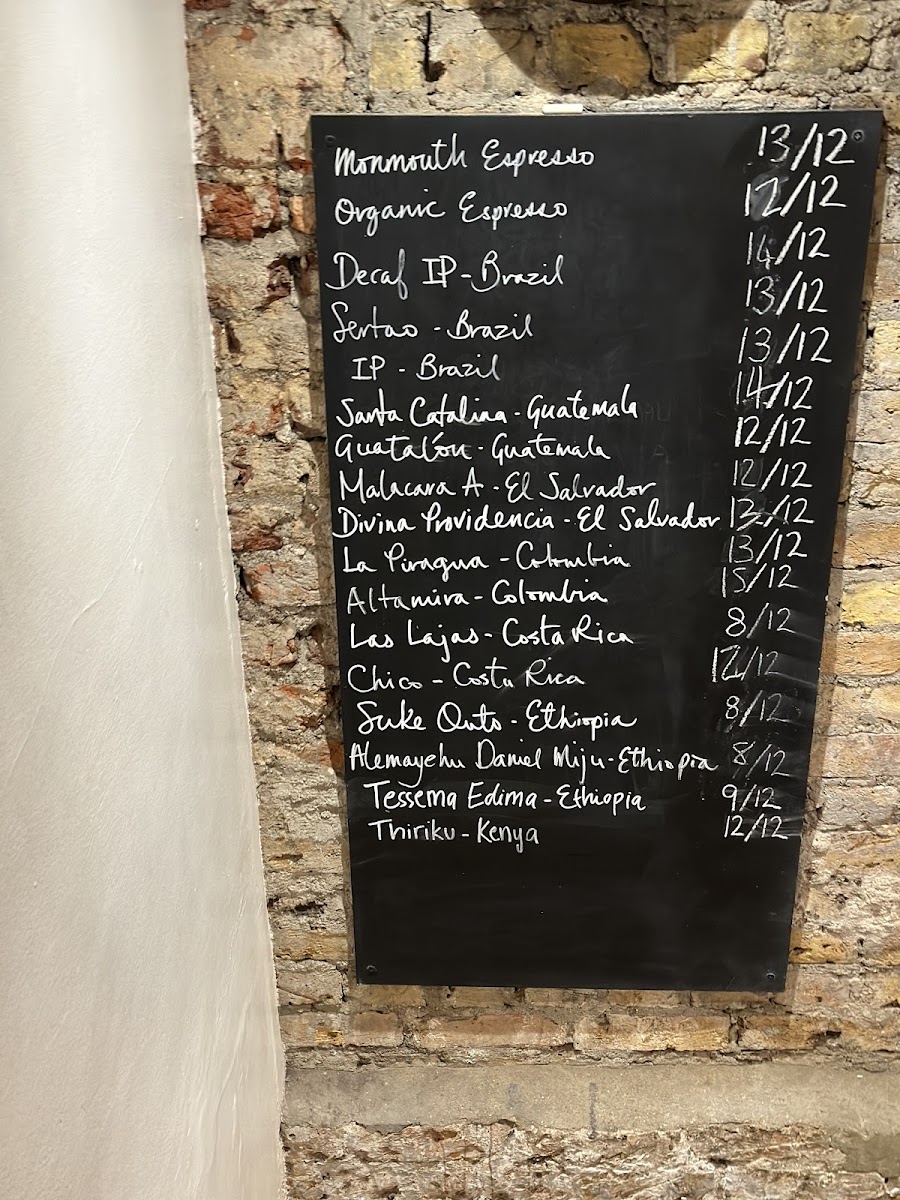 Monmouth Espresso 13/12
Organic Espresso 12/12
Decaf IP - Brazil 14/12
Sertao - Brazil 13/12
IP - Brazil 13/12
Santa Catalina - Guatemala 14/12
Guatalón - Guatemala 12/12
Malacara A - El Salvador 12/12
Divina Providencia - El Salvador 13/12
La Piragua - Colombia 13/12
Altamira - Colombia 15/12
Las Lajas - Costa Rica 8/12
Chico - Costa Rica 12/12
Suke Quto - Ethiopia 8/12
Alemayehu Daniel Miju - Ethiopia 8/12
Tessema Edima - Ethiopia 9/12
Thiriku - Kenya 12/12